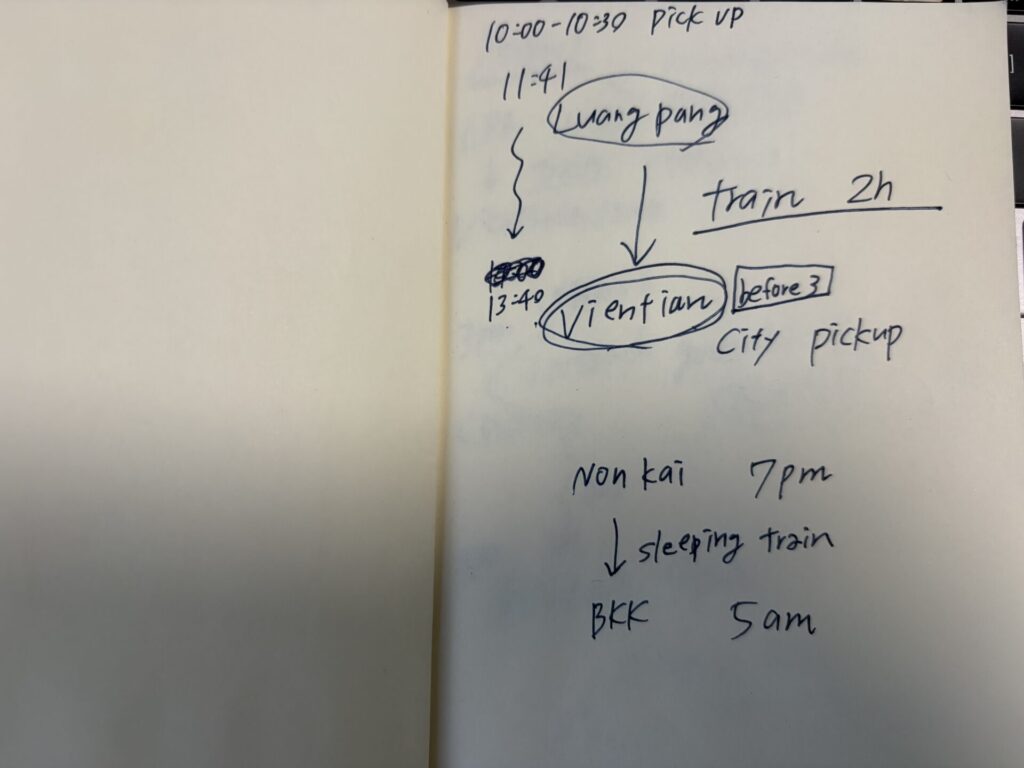 10:00-10:30 pick up
11:41
Luang pang
train 2h
13:40
Vientian
before 3
City pickup
Non kai 7pm
sleeping train
BKK 5am